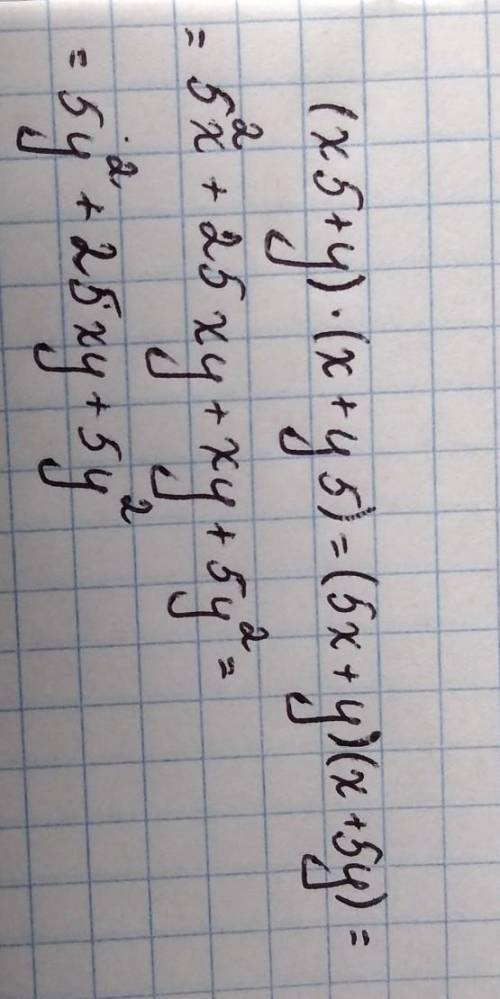 (x5+y)·(x+y5)=(5x+y)(x+5y)=
=5x²+25xy+xy+5y²=
=5y²+25xy+5y²